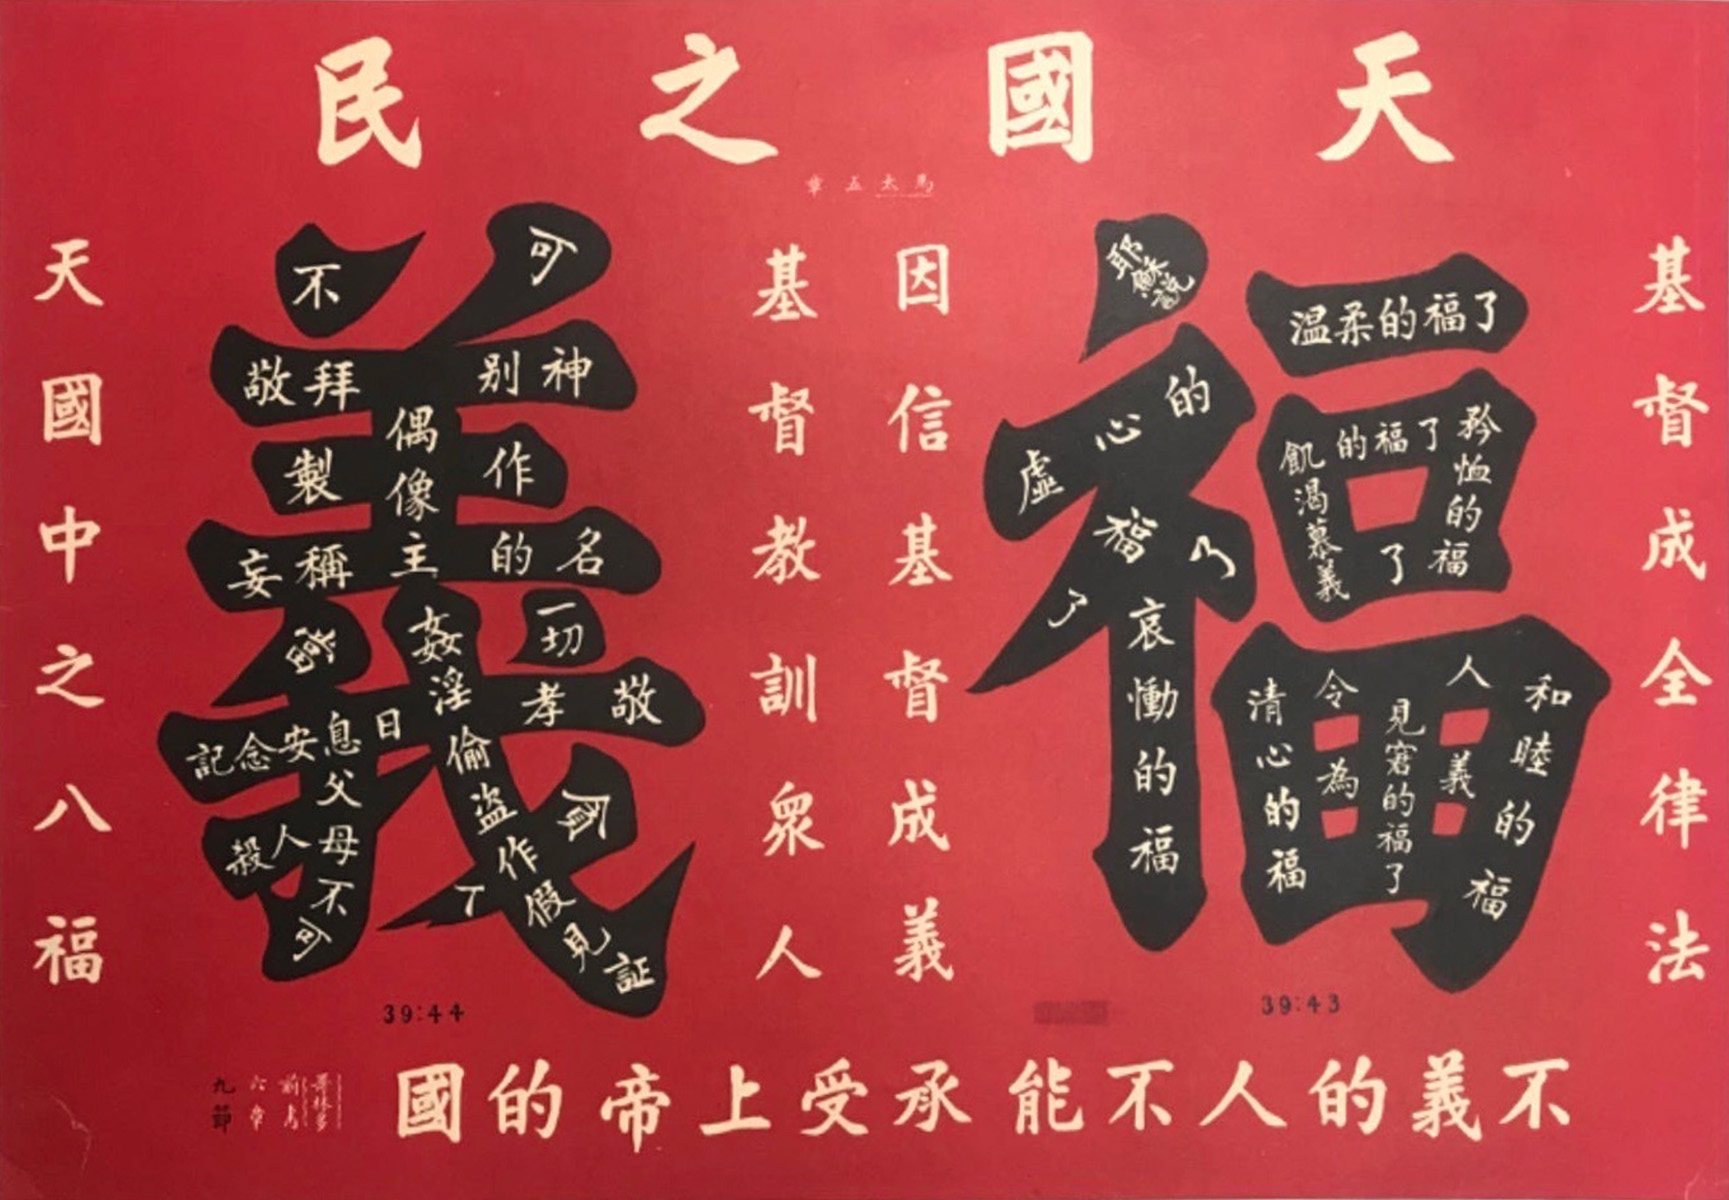 天國之民
馬太五章
基督成全律法
耶穌說
虛心的福了
哀慟的福了
溫柔的福了
飢渴慕義的福了
矜恤的福了
清心的福
令人和睦的福
為義見窘的福了
因信基督成義
基督教訓眾人
不可
敬拜別神
製作偶像
妄稱主的名
記念安息日
孝敬父母
不可
殺人
姦淫
偷盜
作假見証
貪
一切
天國中之八福
39:43
39:44
不義的人不能承受上帝的國
哥林多前書六章九節